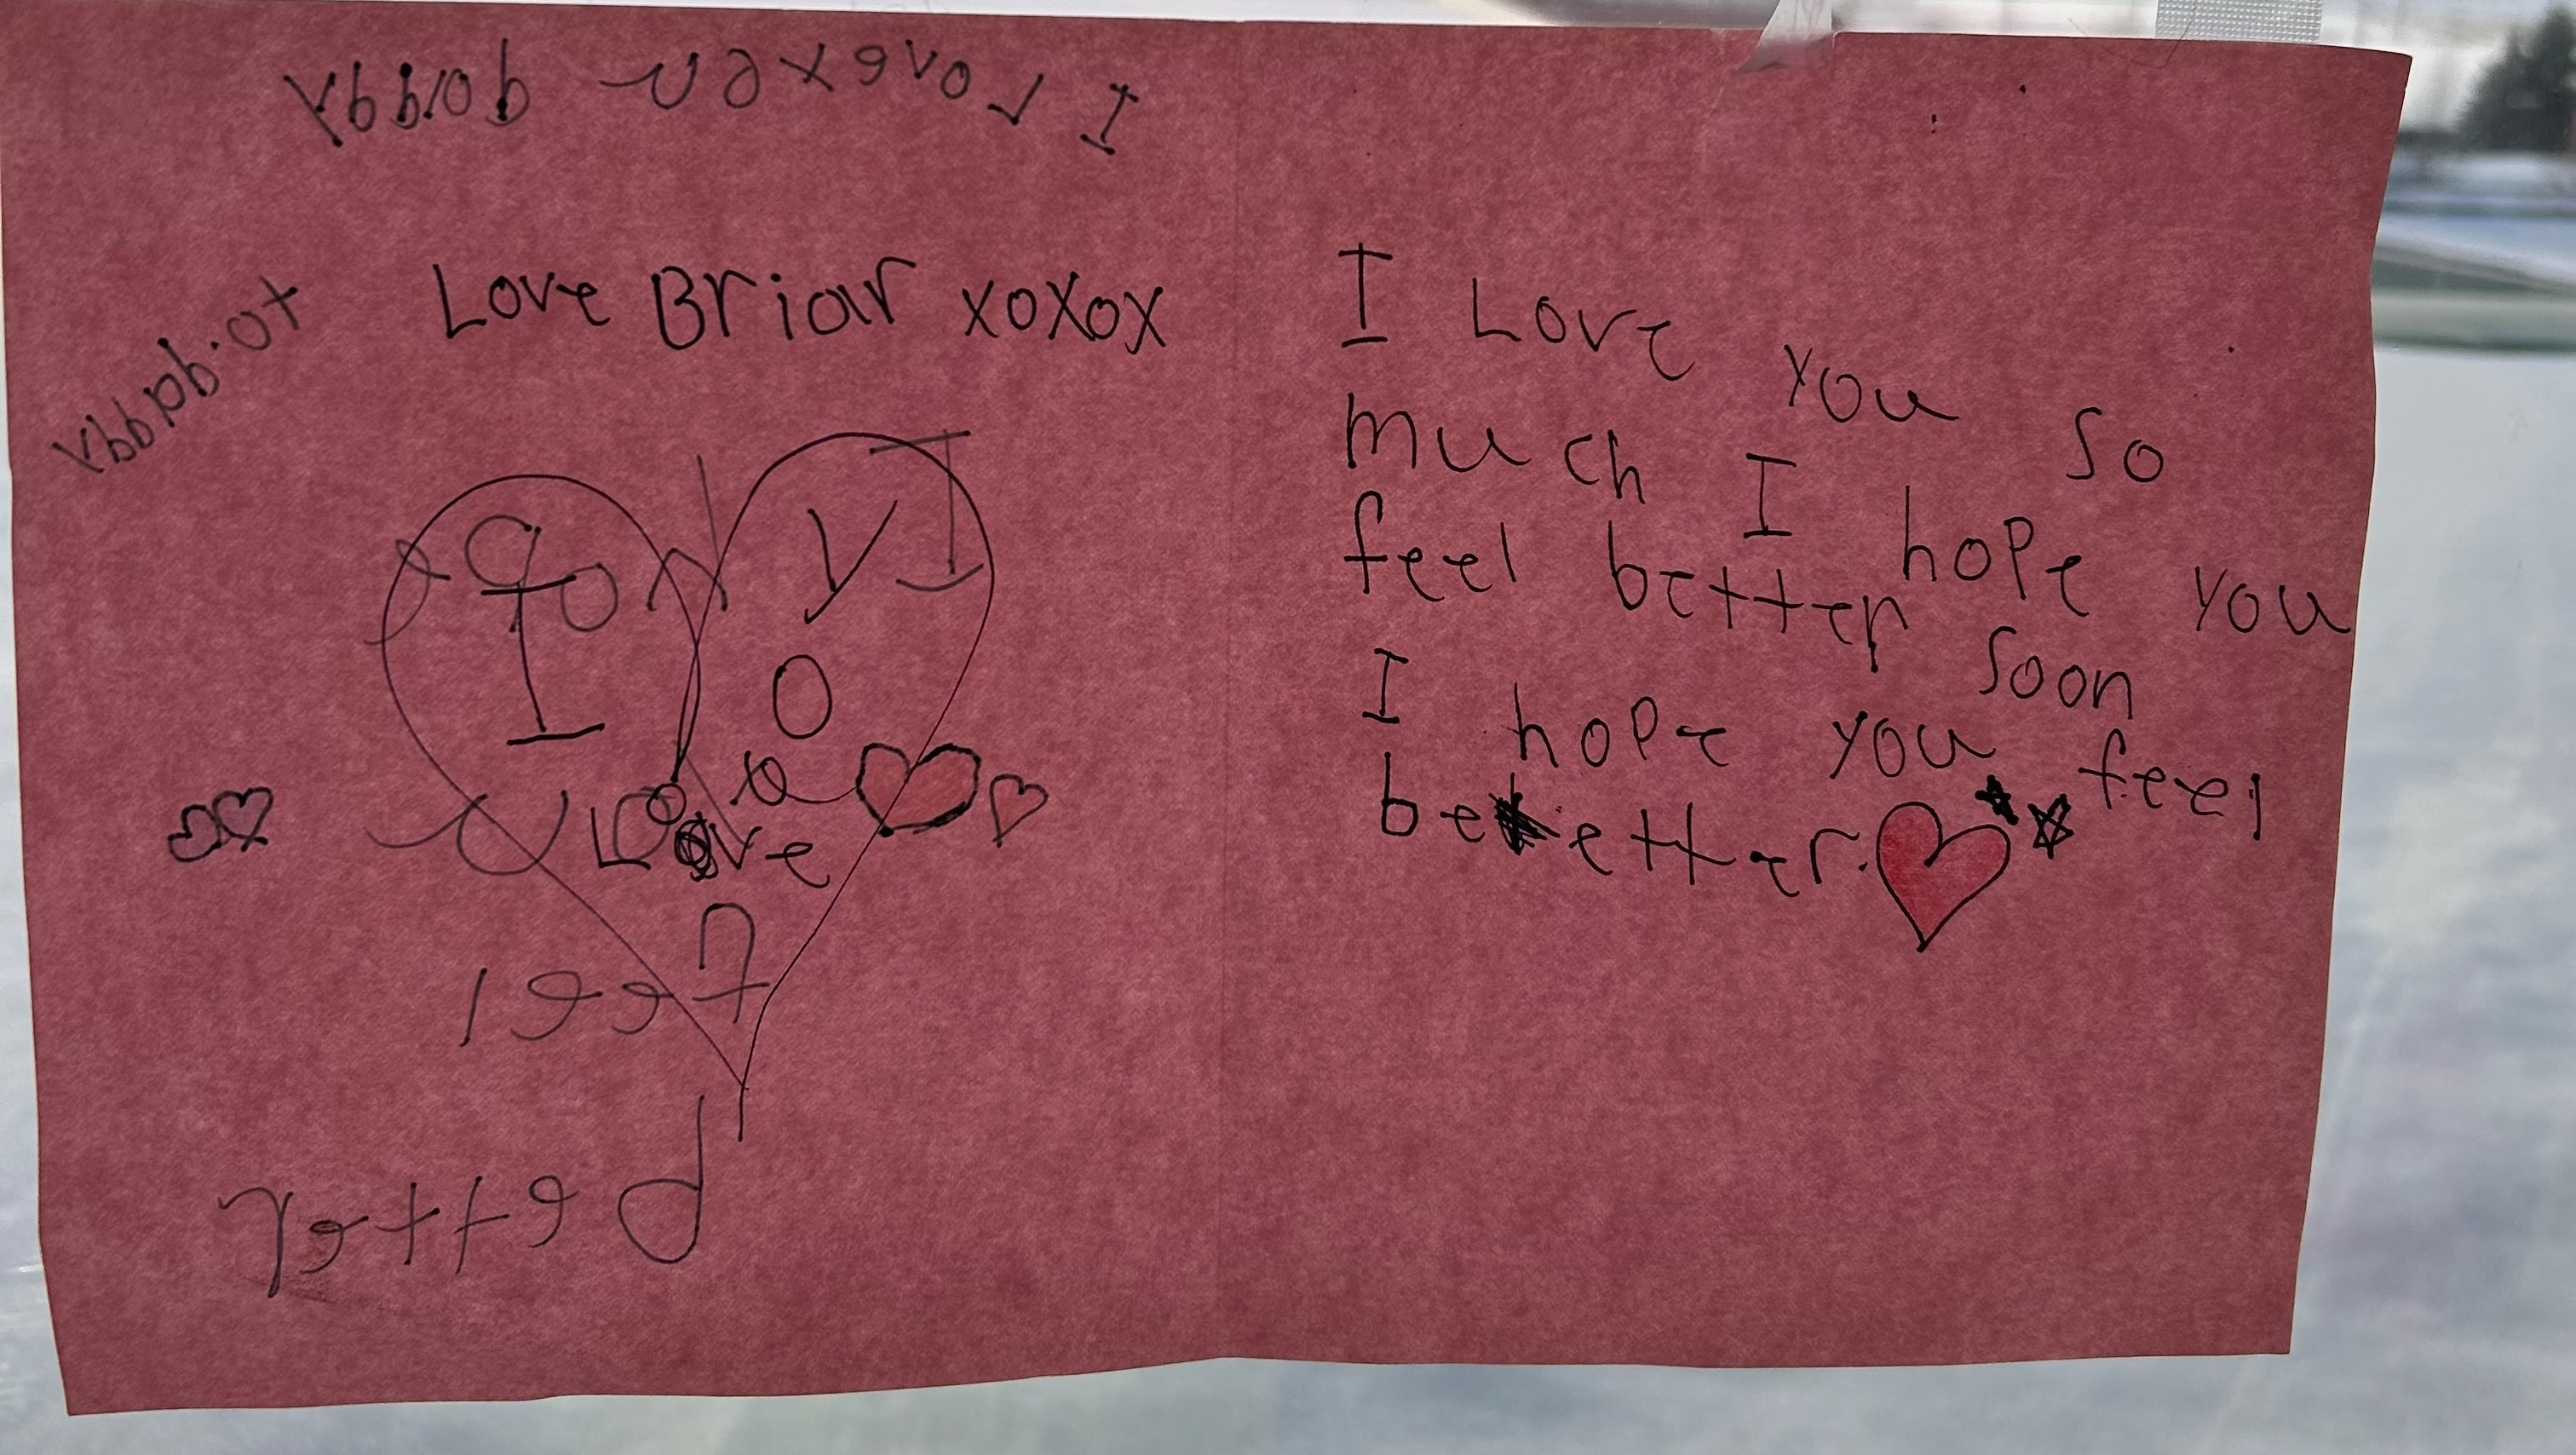 I Love you
to
Love Briar xoxox
I
Love
you
feel
better
I Love you so
much I hope you
feel better soon
I hope you feel
better